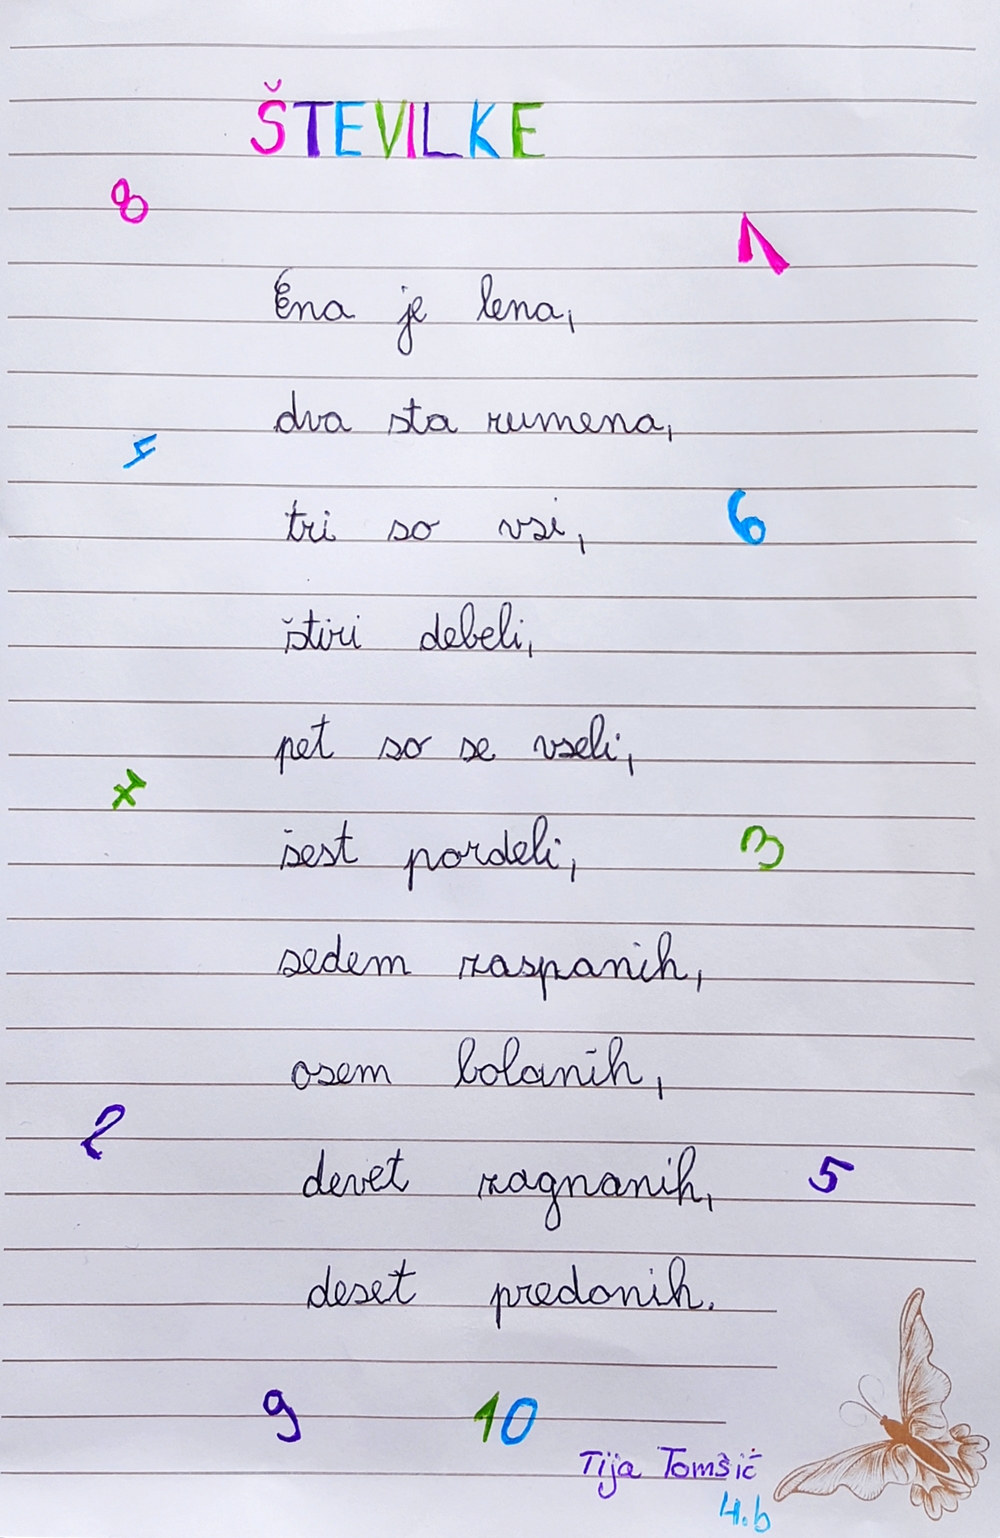 ŠTEVILKE
8
1
Ena je lena,
dva sta rumena,
4
tri so vsi,
6
štiri debeli,
pet so se vseli,
7
šest pordeli,
3
sedem zaspanih,
osem bolanih,
2
devet zagnanih,
5
deset predanih.
9 10
Tija Tomšič
4.b